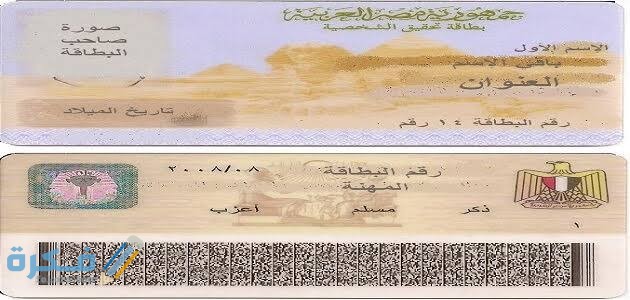 جمهورية مصر العربية
بطاقة تحقيق الشخصية
صورة
صاحب
البطاقة
الاسم الأول
باقي الاسم
العنوان
تاريخ الميلاد
رقم البطاقة ١٤ رقم
رقم البطاقة ٢٠٠٨/٠٨
المهنة
ذكر مسلم أعزب
١
فكرة